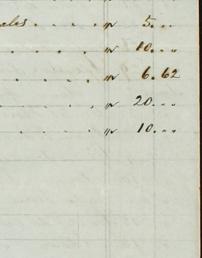 ales . . . . " 5 . . .
. . . . " 10 . . .
. . . . . " 6.62
. . . . " 20 . . .
. . . . " 10 . . .